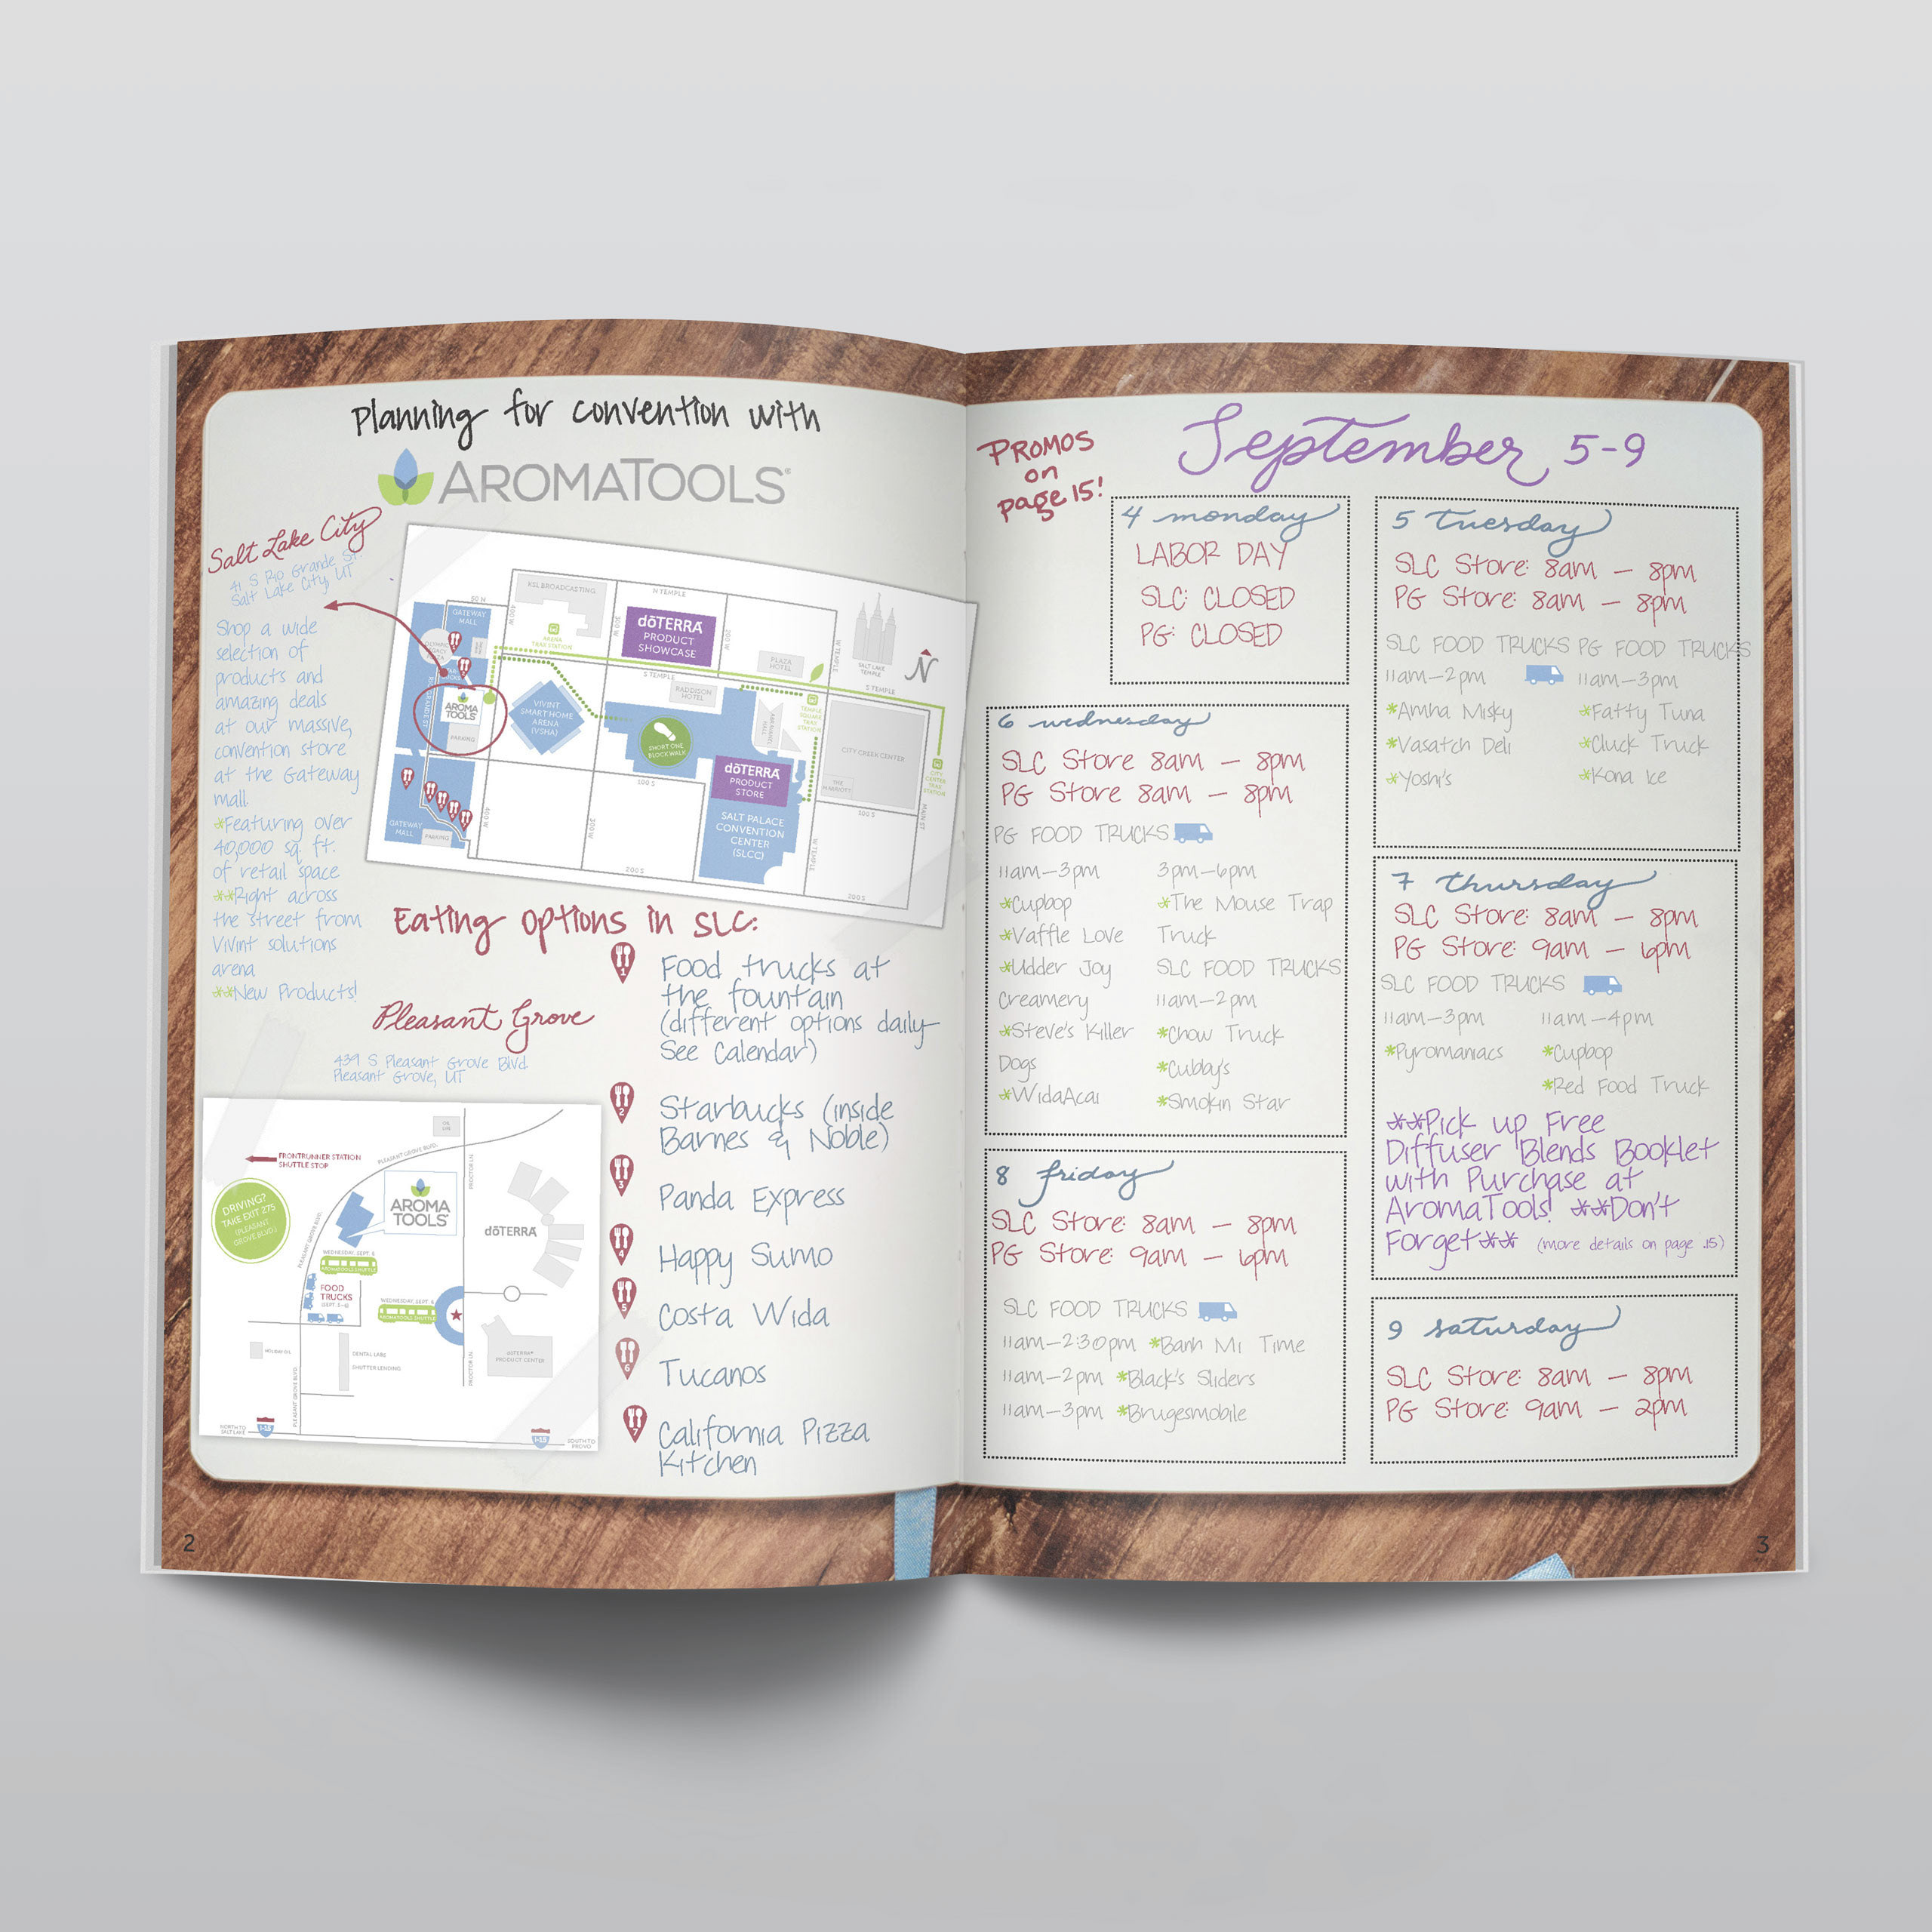 Planning for convention with
AROMATOOLS®
Salt Lake City
41 S Rio Grande St.
Salt Lake City, UT
Shop a wide
selection of
products and
amazing deals
at our massive,
convention store
at the Gateway
mall.
*Featuring over
40,000 sq. ft.
of retail space
**Right across
the street from
Vivint solutions
arena
**New Products!
50 N
GATEWAY
MALL
KSL BROADCASTING
400 W
ARENA
TRAX STATION
N TEMPLE
300 W
200 W
dōTERRA
PRODUCT
SHOWCASE
PLAZA
HOTEL
W TEMPLE
SALT LAKE
TEMPLE
N
S TEMPLE
S TEMPLE
RADISSON
HOTEL
RIO GRANDE ST
AROMA
TOOLS
PARKING
VIVINT
SMART HOME
ARENA
(VSHA)
SHORT ONE
BLOCK WALK
TEMPLE
SQUARE
TRAX
STATION
CITY CREEK CENTER
THE
MARRIOTT
CITY
CENTER
TRAX
STATION
MAIN ST
dōTERRA
PRODUCT
STORE
SALT PALACE
CONVENTION
CENTER
(SLCC)
100 S
100 S
400 W
300 W
W TEMPLE
GATEWAY
MALL
PARKING
200 S
200 S
Eating options in SLC:
1
Food trucks at
the fountain
(different options daily-
See Calendar)
2
Starbucks (inside
Barnes & Noble)
3
Panda Express
4
Happy Sumo
5
Costa Vida
6
Tucanos
7
California Pizza
Kitchen
Pleasant Grove
439 S Pleasant Grove Blvd.
Pleasant Grove, UT
FRONTRUNNER STATION
SHUTTLE STOP
PLEASANT GROVE BLVD.
PROCTOR LN.
DRIVING?
TAKE EXIT 275
(PLEASANT
GROVE BLVD.)
AROMA
TOOLS
dōTERRA
PLEASANT GROVE BLVD.
WEDNESDAY, SEPT. 6
AROMATOOLS SHUTTLE
FOOD
TRUCKS
(SEPT. 5-6)
WEDNESDAY, SEPT. 6
AROMATOOLS SHUTTLE
HOLIDAY OIL
DENTAL LABS
SHUTTER LENDING
dōTERRA®
PRODUCT CENTER
PLEASANT GROVE BLVD.
PROCTOR LN.
NORTH TO
SALT LAKE
I-15
I-15
SOUTH TO
PROVO
2
PROMOS
on
page 15!
September 5-9
4 monday
LABOR DAY
SLC: CLOSED
PG: CLOSED
5 tuesday
SLC Store: 8am – 8pm
PG Store: 8am – 8pm
SLC FOOD TRUCKS PG FOOD TRUCKS
11am–2pm 11am–3pm
*Amha Misky *Fatty Tuna
*Vasatch Deli *Cluck Truck
*Yoshi's *Kona Ice
6 wednesday
SLC Store 8am – 8pm
PG Store 8am – 8pm
PG FOOD TRUCKS
11am–3pm 3pm–6pm
*Cupbop *The Mouse Trap
*Vaffle Love Truck
*Udder Joy SLC FOOD TRUCKS
Creamery 11am–2pm
*Steve's Killer *Chow Truck
Dogs *Cubby's
*VidaAcai *Smokin Star
7 thursday
SLC Store: 8am – 8pm
PG Store: 9am – 6pm
SLC FOOD TRUCKS
11am–3pm 11am–4pm
*Pyromaniacs *Cupbop
*Red Food Truck
**Pick up Free
Diffuser Blends Booklet
with Purchase at
AromaTools! **Don't
Forget** (more details on page 15)
8 friday
SLC Store: 8am – 8pm
PG Store: 9am – 6pm
SLC FOOD TRUCKS
11am–2:30pm *Banh Mi Time
11am–2pm *Black's Sliders
11am–3pm *Brugesmobile
9 saturday
SLC Store: 8am – 8pm
PG Store: 9am – 2pm
3